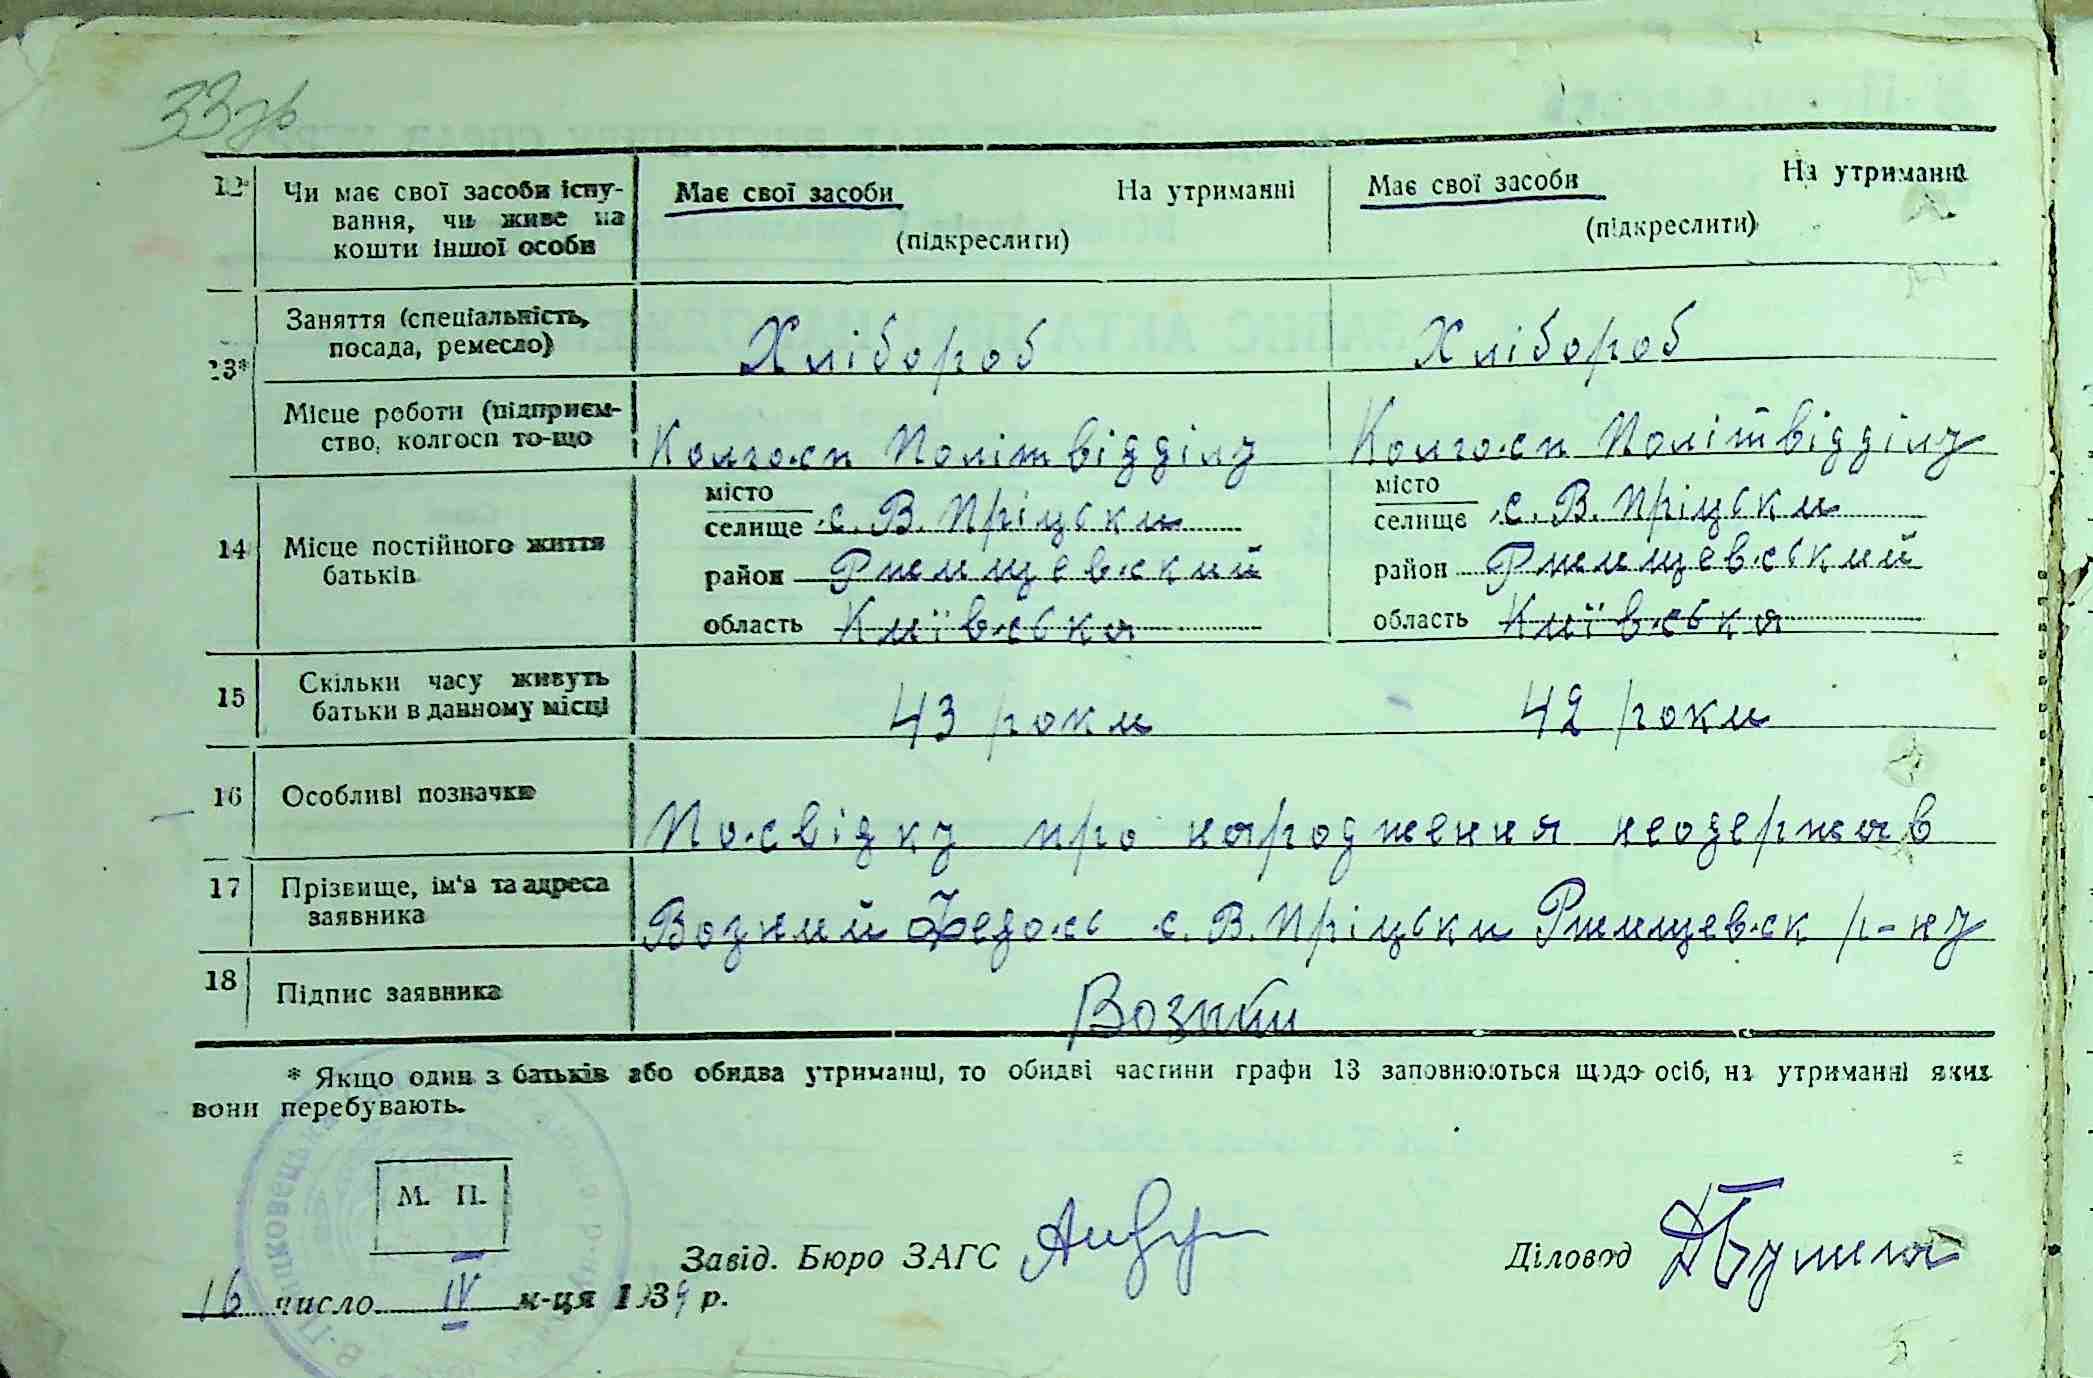 33зв
12 Чи має свої засоби існу-
вання, чи живе на
кошти іншої особи
Має свої засоби На утриманні
(підкреслити)
Має свої засоби На утриманні
(підкреслити)
13*
Заняття (спеціальність,
посада, ремесло)
Хлібороб
Хлібороб
Місце роботи (підприєм-
ство, колгосп то-що
Колгосп Політвідділу
Колгосп Політвідділу
14 Місце постійного життя
батьків
місто
селище с. В. Пріцьки
район Ржищевский
область Київська
місто
селище с. В. Пріцьки
район Ржищевський
область Київська
15 Скільки часу живуть
батьки в данному місці
43 роки
42 роки
16 Особливі позначки
Посвідку про народження неодержав
17 Прізвище, ім'я та адреса
заявника
Возний Федось с. В. Пріцьки Ржищевск р-ну
18 Підпис заявника
Возний
* Якщо один з батьків або обидва утриманці, то обидві частини графи 13 заповнюються щодо осіб, на утриманні яких
вони перебувають.
М. П.
Завід. Бюро ЗАГС
Діловод
16 число IV м-ця 1934 р.